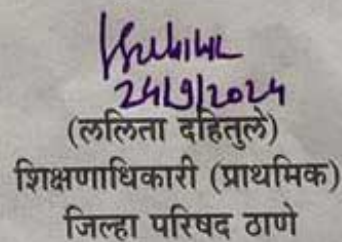 24/9/2024
(ललिता दहितुले)
शिक्षणाधिकारी (प्राथमिक)
जिल्हा परिषद ठाणे